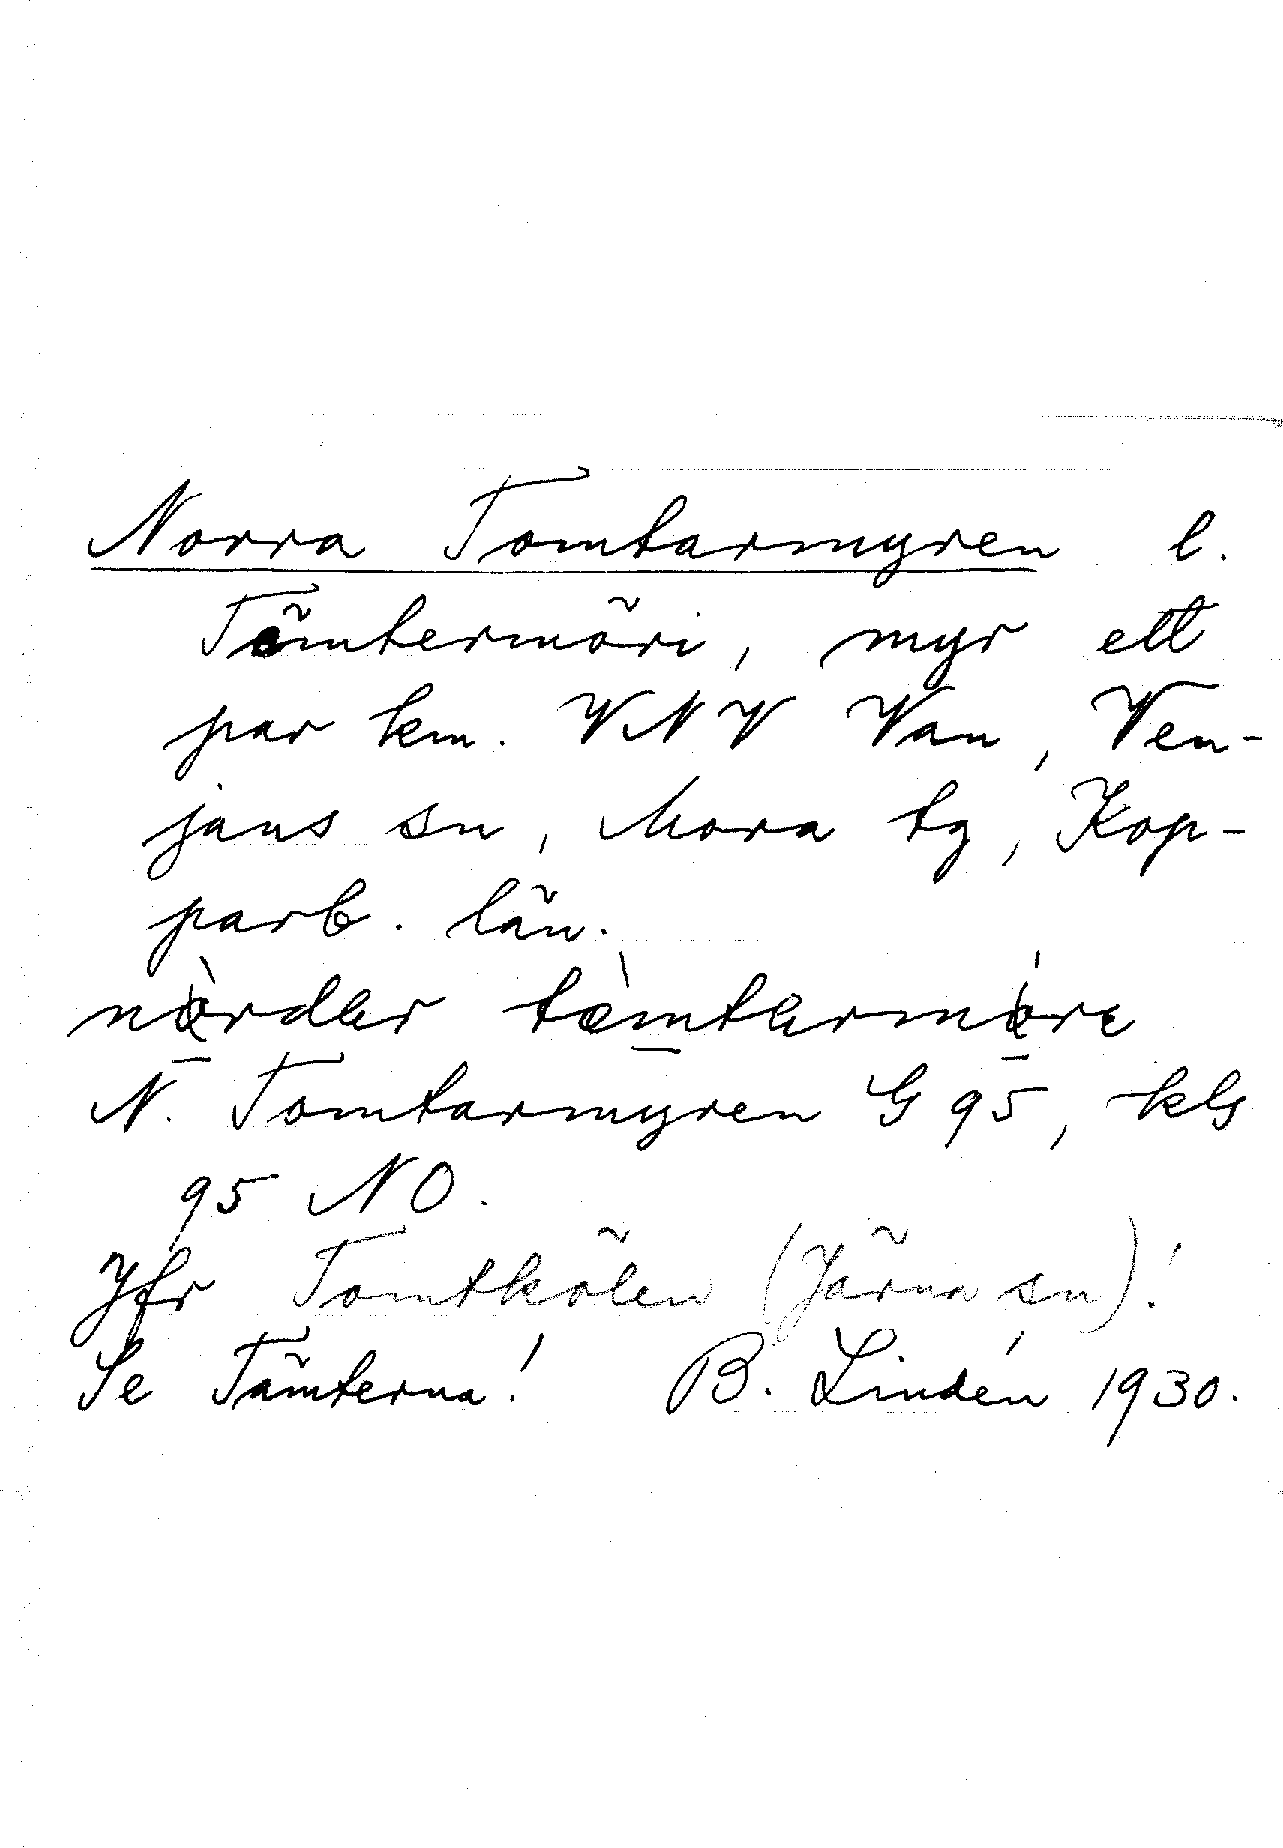 Norra Tomtarmyren l.
Tömtermöri, myr ett
par km. VNV Van, Ven-
jans sn, Mora tg, Kop-
parb. län.
N. Tomtarmyren G 95, kls
95 NO.
Jfr Tomtkölen (Järna sn)!
Se Tämterna! B. Lindén 1930.